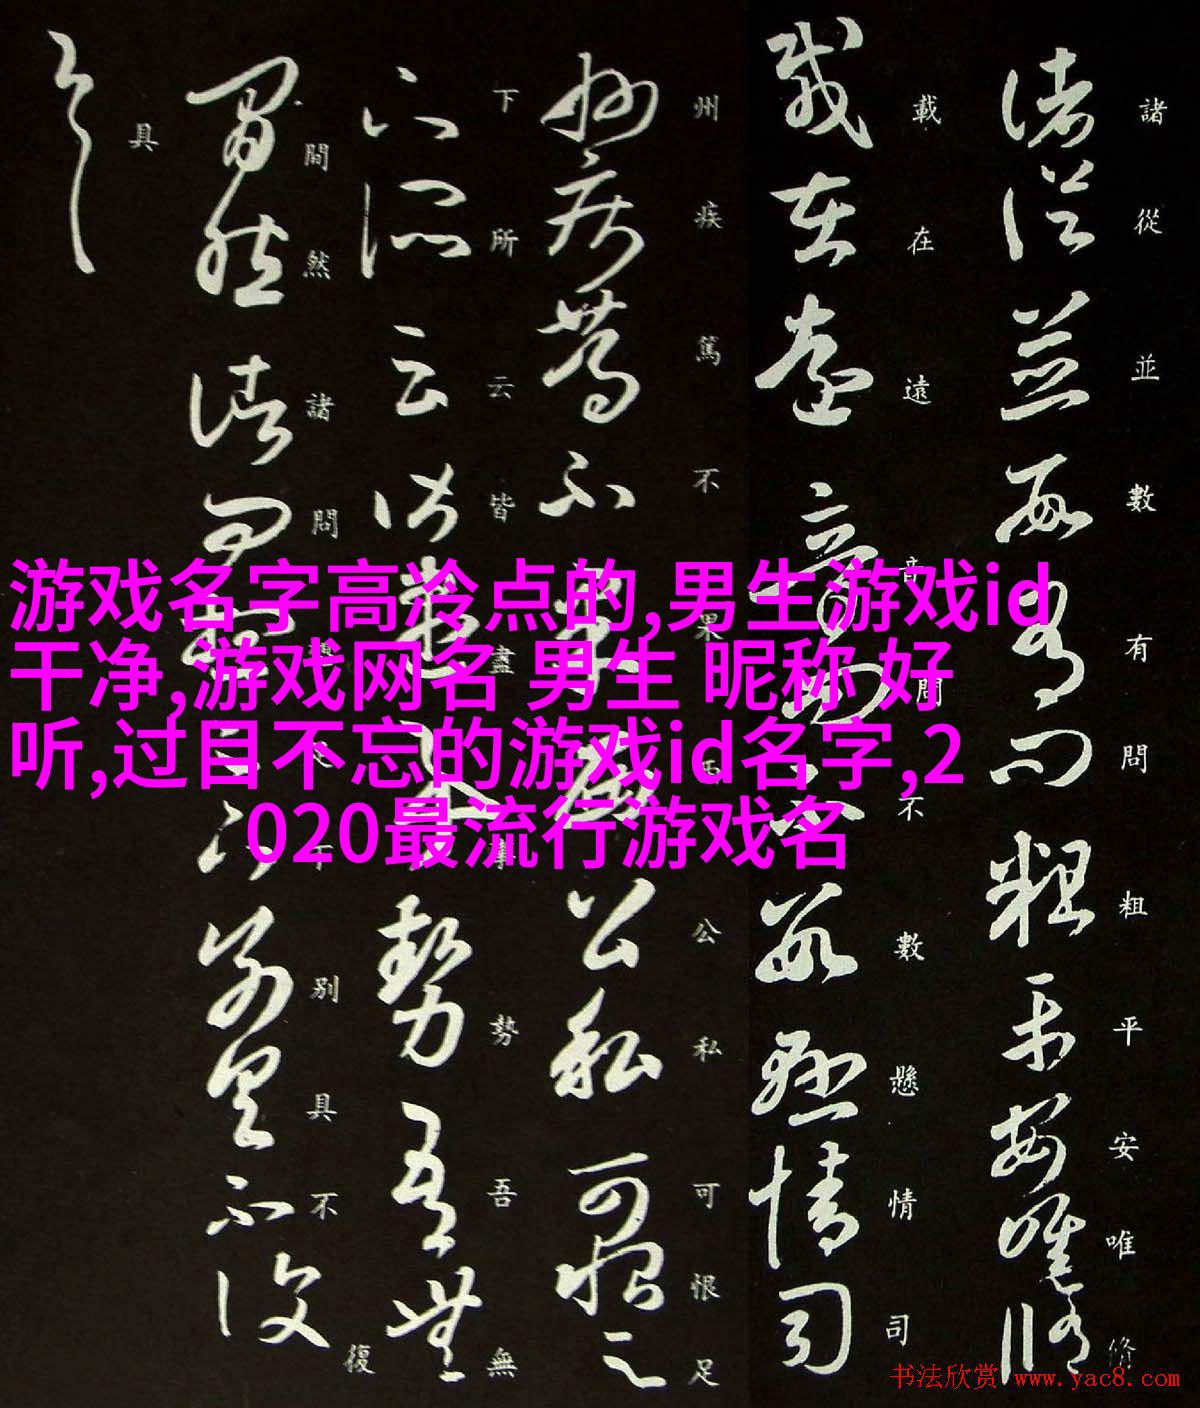 諸從並數有問粗平安唯修
載在遠音問不數懸情司
州疾篤不果公私可恨足
下所云皆盡事勢吾無
間然諸問別具不復
具
游戏名字高冷点的,男生游戏id
干净,游戏网名 男生 昵称 好
听,过目不忘的游戏id名字,2
020最流行游戏名
书法欣赏 www.yac8.com